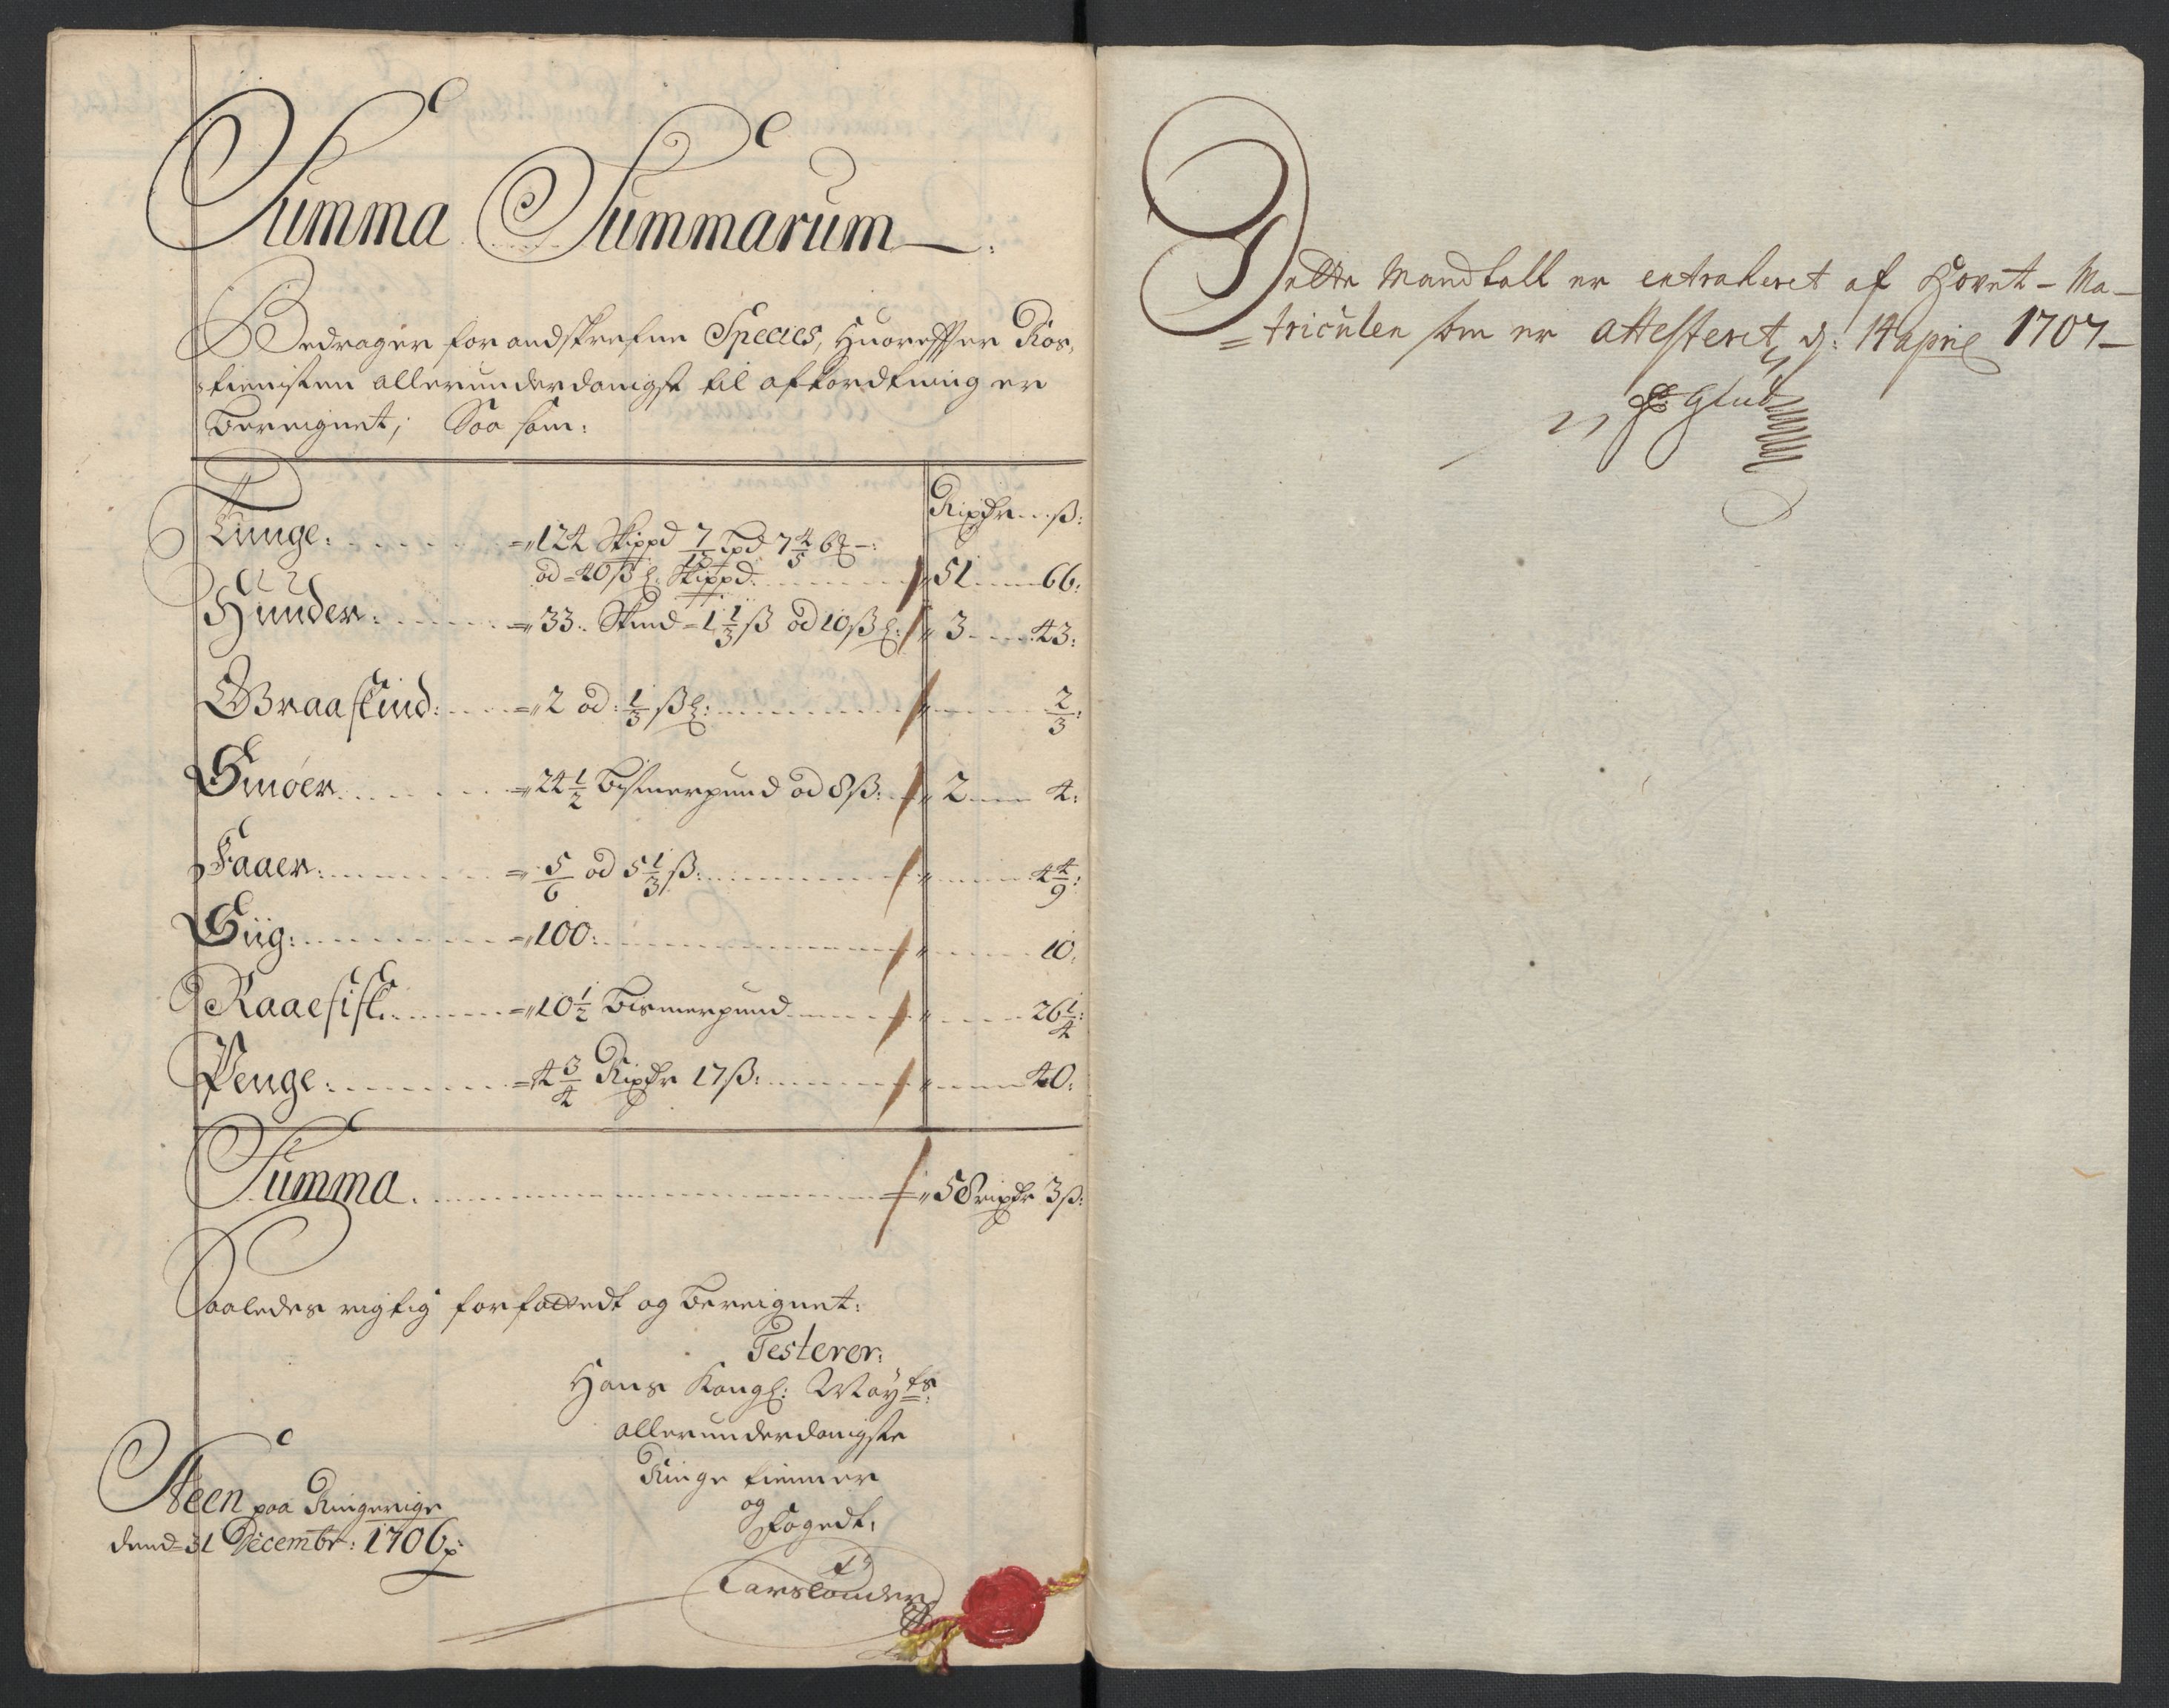 Summa Summarum
Bedrager forandskrefne Species, Huoreffter Ros,
tienisten allerunderdanigst til afkordtning er
Bereignet, Saa som:
Rixdr ß:
Tunge: 124 Skippd 7/15 Lpd 7 4/5
ad 40 ß Skippd 51 66:
Hunder: 33 Skind 1 1/3 ß ad 10 ß 3 43:
Graaskind: 2 ad 1/3 ß 2/3:
Smöer 24 1/2 Bismerpund ad 8 ß: 2 4:
Faaer: 5/6 ad 5 1/3 ß: 4 4/9:
Siig: 100: 10:
Raaefisk: 10 1/2 Bismerpund 26 1/4:
Penge: 4 3/4 Rixdr 17 ß: 40:
Summa 58 rixdr 3 ß:
Saaledes rigtig forfattedt og Bereignet:
Testerer:
Hans Kongl: Mayts:
allerunderdanigste
Ringe tienner
og
Fogedt:
Steen paa Ringerige
dend 31 Decembr: 1706
Dette Mandtall er extraheret af Hovet-Ma-
triculen som er Attesteret d: 14 april 1707
Glud